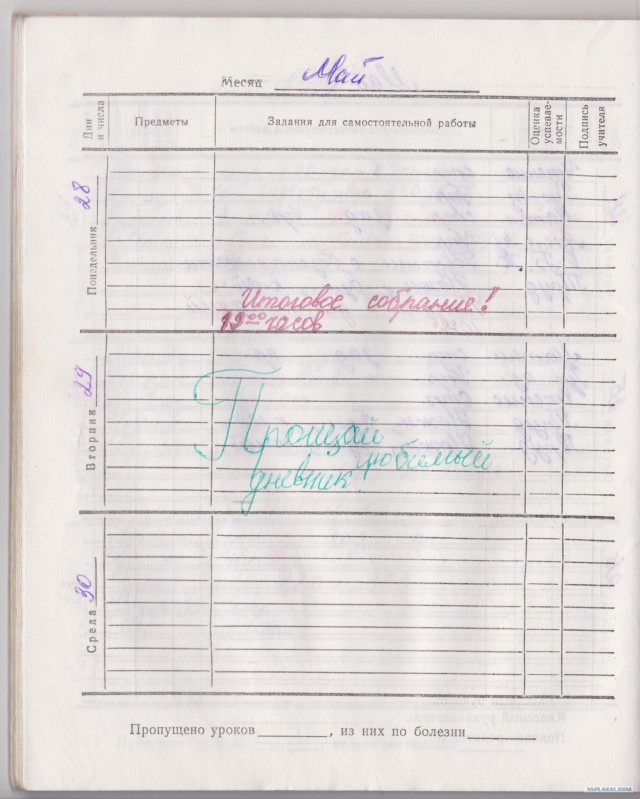 Месяц Май
Дни и числа Предметы Задания для самостоятельной работы Оценка успевае-мости Подпись учителя
Понедельник 28
Итоговое собрание!
19⁰⁰ часов
Вторник 29
Прощай
любимый
дневник!
Среда 30
Пропущено уроков , из них по болезни
YAPLAKAL.COM